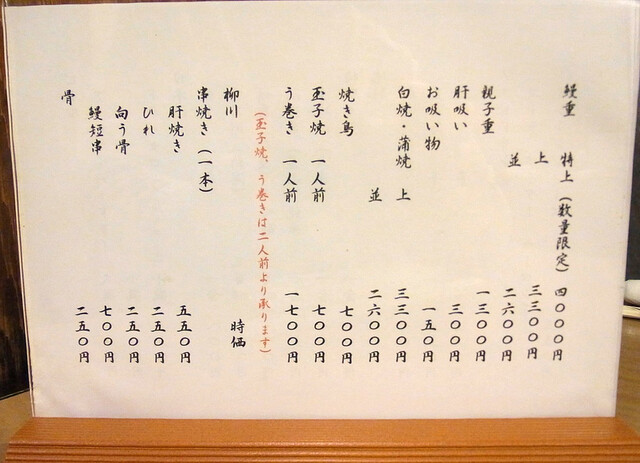 鰻重 特上(数量限定) 四〇〇〇円
上 三三〇〇円
並 二六〇〇円
親子重 一三〇〇円
肝吸い 三〇〇円
お吸い物 一五〇円
白焼・蒲焼 上 三三〇〇円
並 二六〇〇円
焼き鳥 七〇〇円
玉子焼 一人前 七〇〇円
う巻き 一人前 一七〇〇円
(玉子焼、う巻きは二人前より承ります)
柳川 時価
串焼き(一本)
肝焼き 五五〇円
ひれ 二五〇円
向う骨 二五〇円
鰻短串 七〇〇円
骨 二五〇円